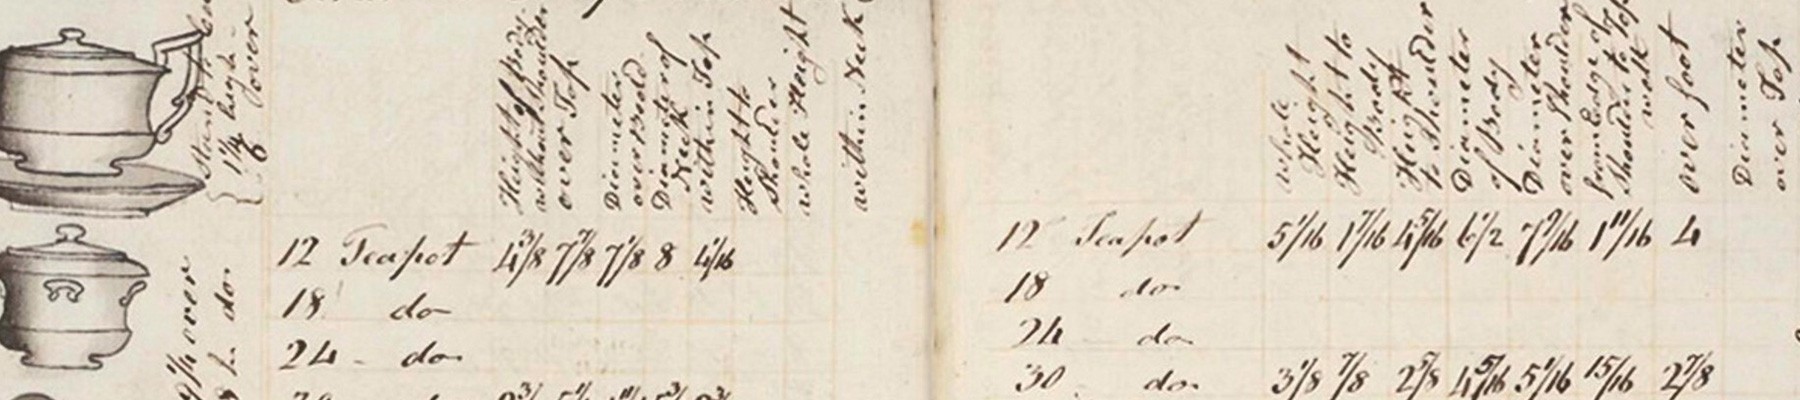 1 1/4 high
over
Height of Body
without Shoulder
over Top
Diameter
over Bead
Diameter of
Neck
within Top
Height to
Shoulder
whole Height
within Neck
12 Teapot 4 3/8 7 7/8 7 1/8 8 4 1/16
18 do
24 - do
9 1/4 over
do
whole
Height
Height to
Body
Height
to Shoulder
Diameter
of Body
Diameter
over Shoulder
from Edge of
Shoulder to Top
over foot
Diameter
over Top
12 Teapot 5 1/16 1 7/16 4 5/16 6 1/2 7 9/16 1 11/16 4
18 do
24 do
30 do 3 1/8 7/8 2 5/8 4 5/16 5 1/16 15/16 2 7/8